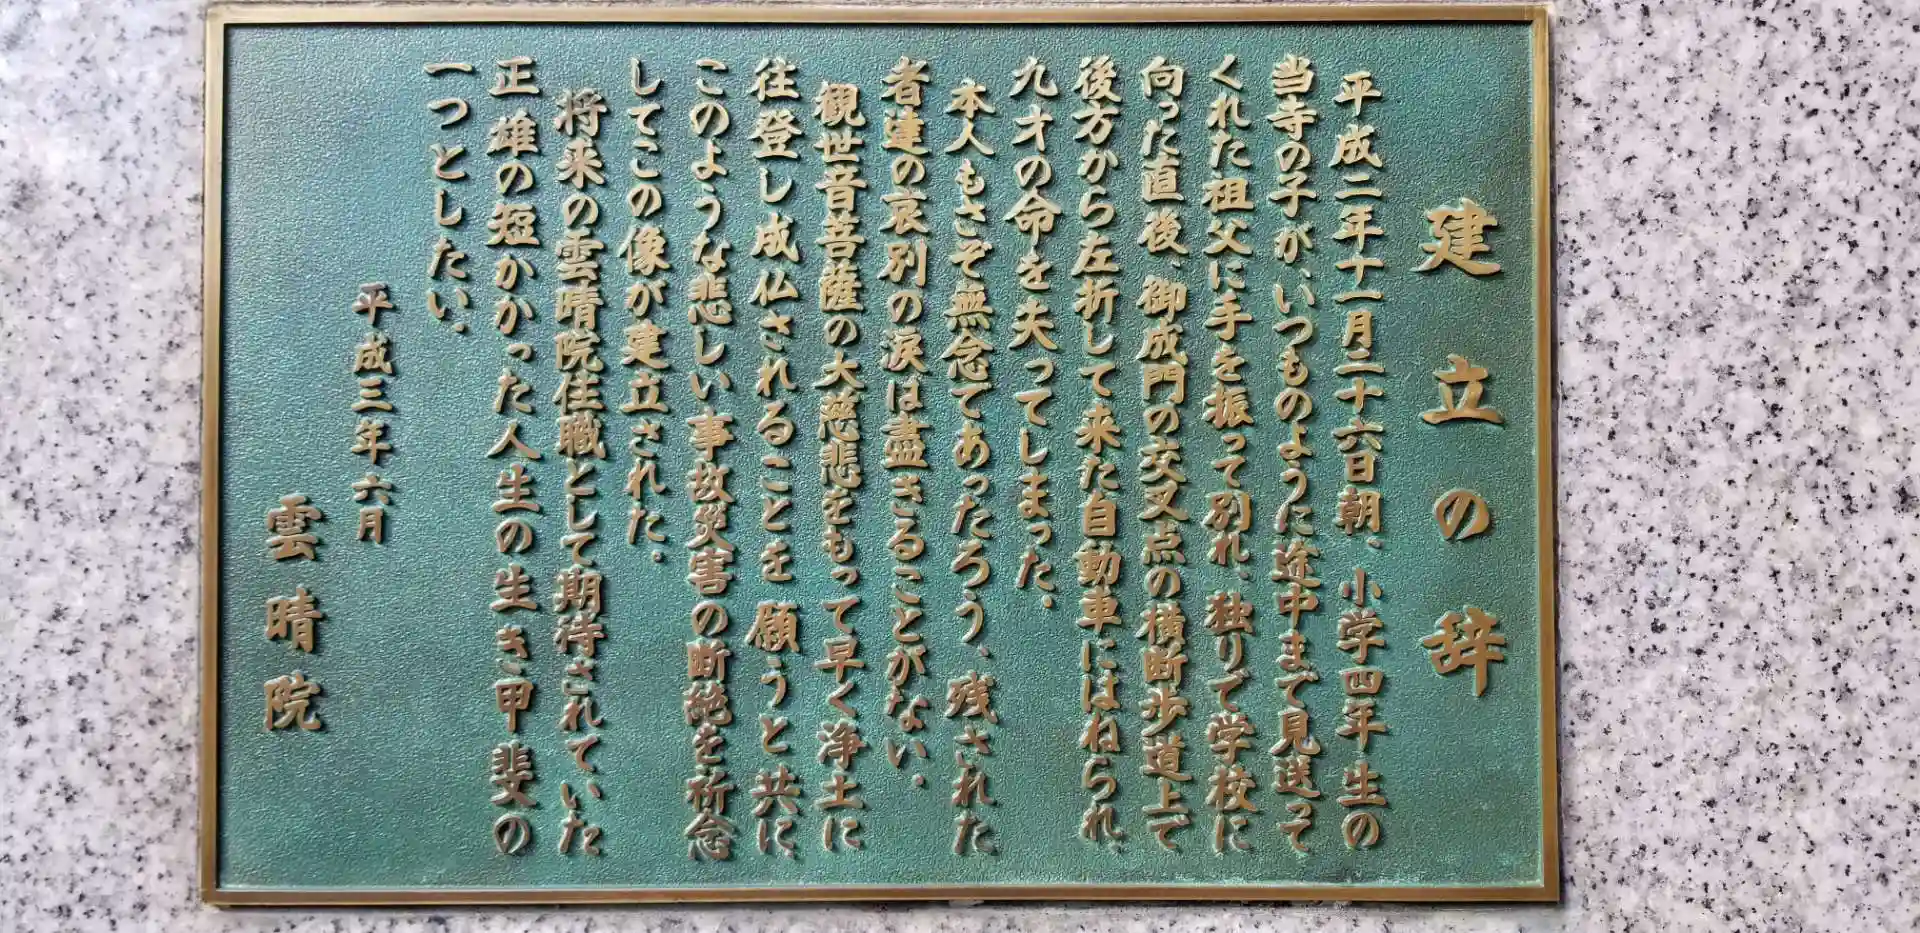 建立の辞
平成二年十一月二十六日朝、小学四年生の
当寺の子が、いつものように途中まで見送って
くれた祖父に手を振って別れ、独りで学校に
向った直後、御成門の交叉点の横断歩道上で
後方から左折して来た自動車にはねられ、
九才の命を失ってしまった。
本人もさぞ無念であったろう、残された
者達の哀別の涙は盡きることがない。
観世音菩薩の大慈悲をもって早く浄土に
往登し成仏されることを願うと共に、
このような悲しい事故災害の断絶を祈念
してこの像が建立された。
将来の雲晴院住職として期待されていた
正雄の短かかった人生の生き甲斐の
一つとしたい。
平成三年六月
雲晴院